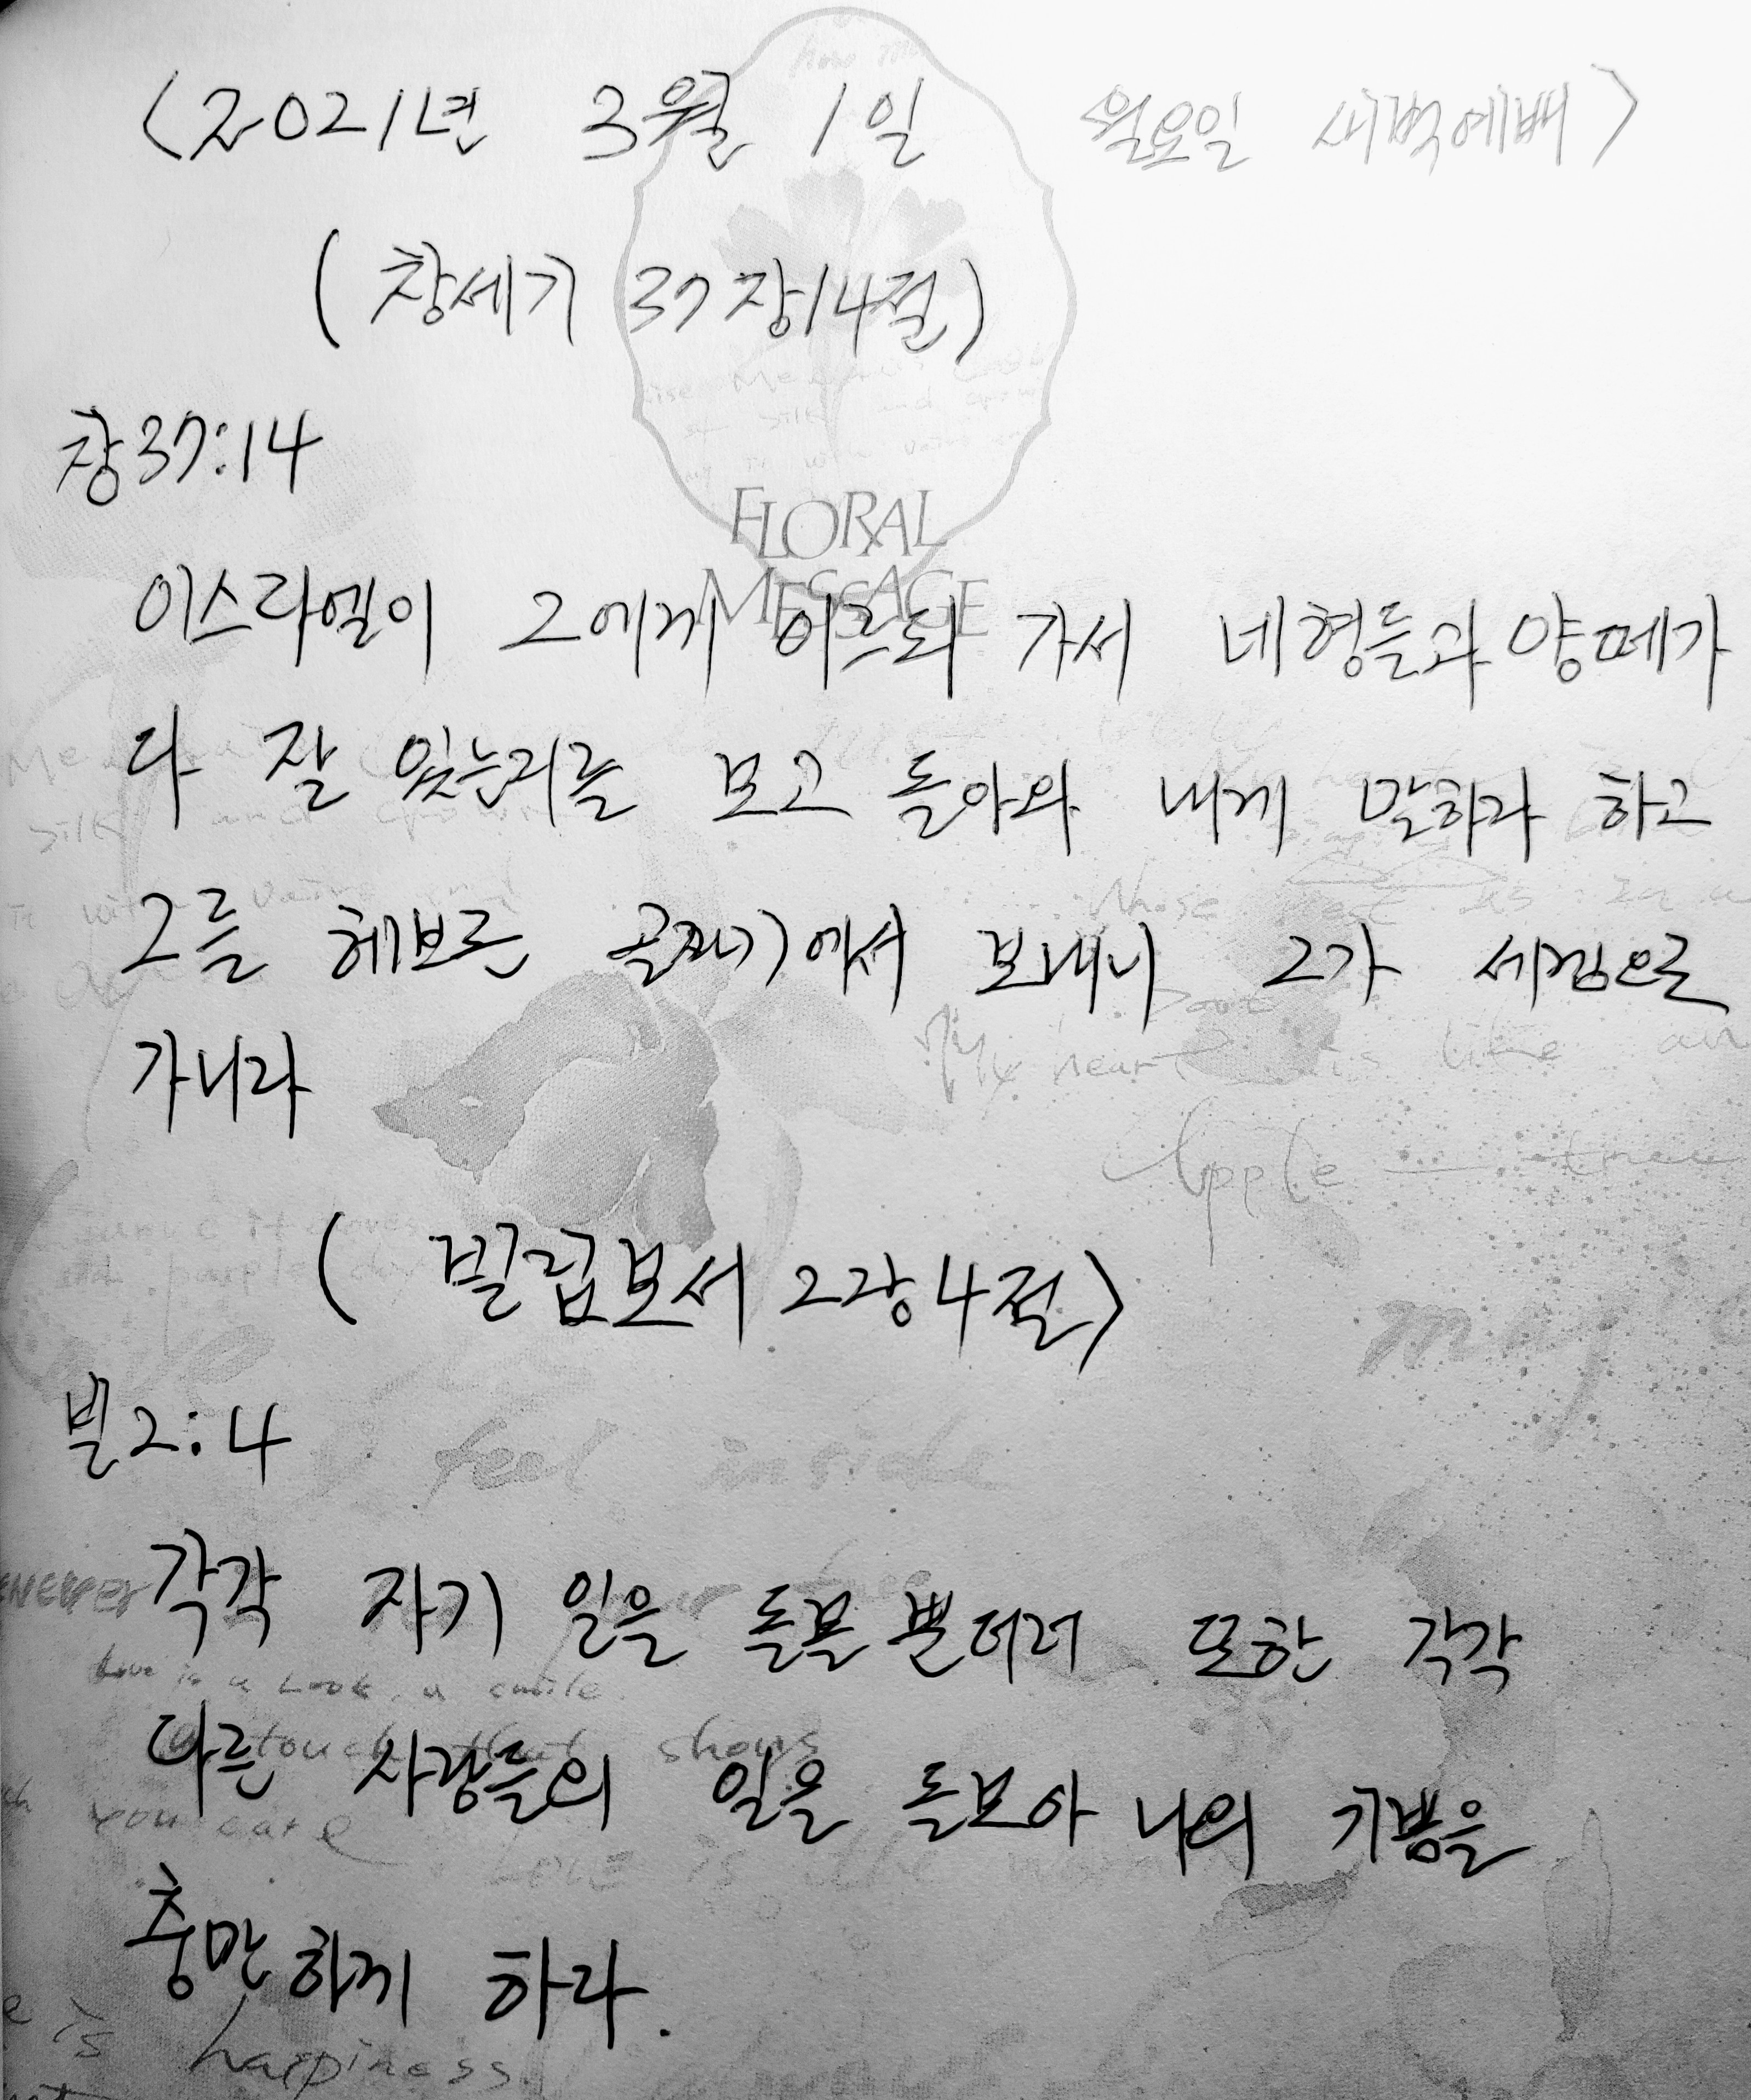 (2021년 3월 1일 월요일 새벽예배)
(창세기 37장14절)
창37:14
FLORAL
MESSAGE
이스라엘이 그에게 이르되 가서 네형들과 양떼가
다 잘 있는지를 보고 돌아와 내게 말하라 하고
그를 헤브론 골짜기에서 보내니 그가 세겜으로
가니라
My heart is like an
Apple tree
(빌립보서 2장4절)
빌2:4
feel inside
각각 자기 일을 돌볼뿐더러 또한 각각
Love is a Look, a smile
다른 사람들의 일을 돌보아 나의 기쁨을
touch that shows
you care
충만하게 하라.
is happiness